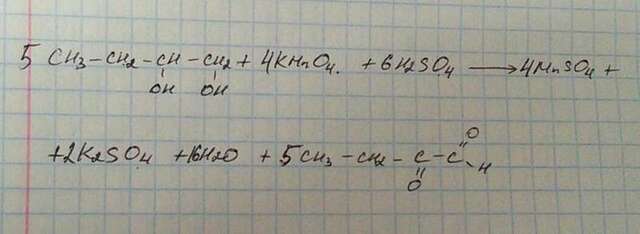 5 CH3-CH2-CH-CH2 + 4KMnO4. + 6H2SO4 → 4MnSO4 +
OH OH
+2K2SO4 +16H2O + 5CH3-CH2-C-C=O
O H